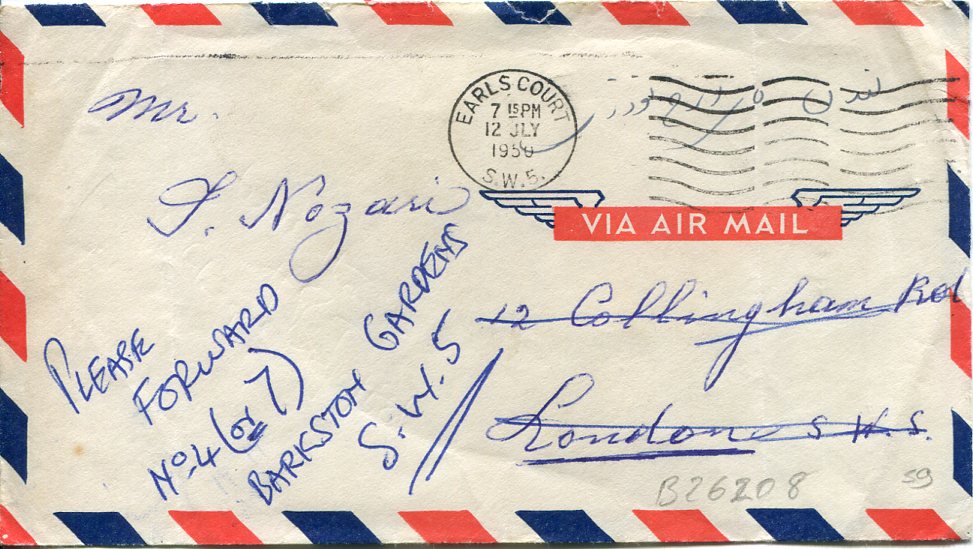 Mr.
S. Nozari
12 Collingham Rd
London S.W.5.
PLEASE
FORWARD
No. 4 (or 7)
BARKSTON GARDENS
S.W.5
EARLS COURT
7 15 PM
12 JLY
1950
S.W.5.
VIA AIR MAIL
لندن
B26208
59